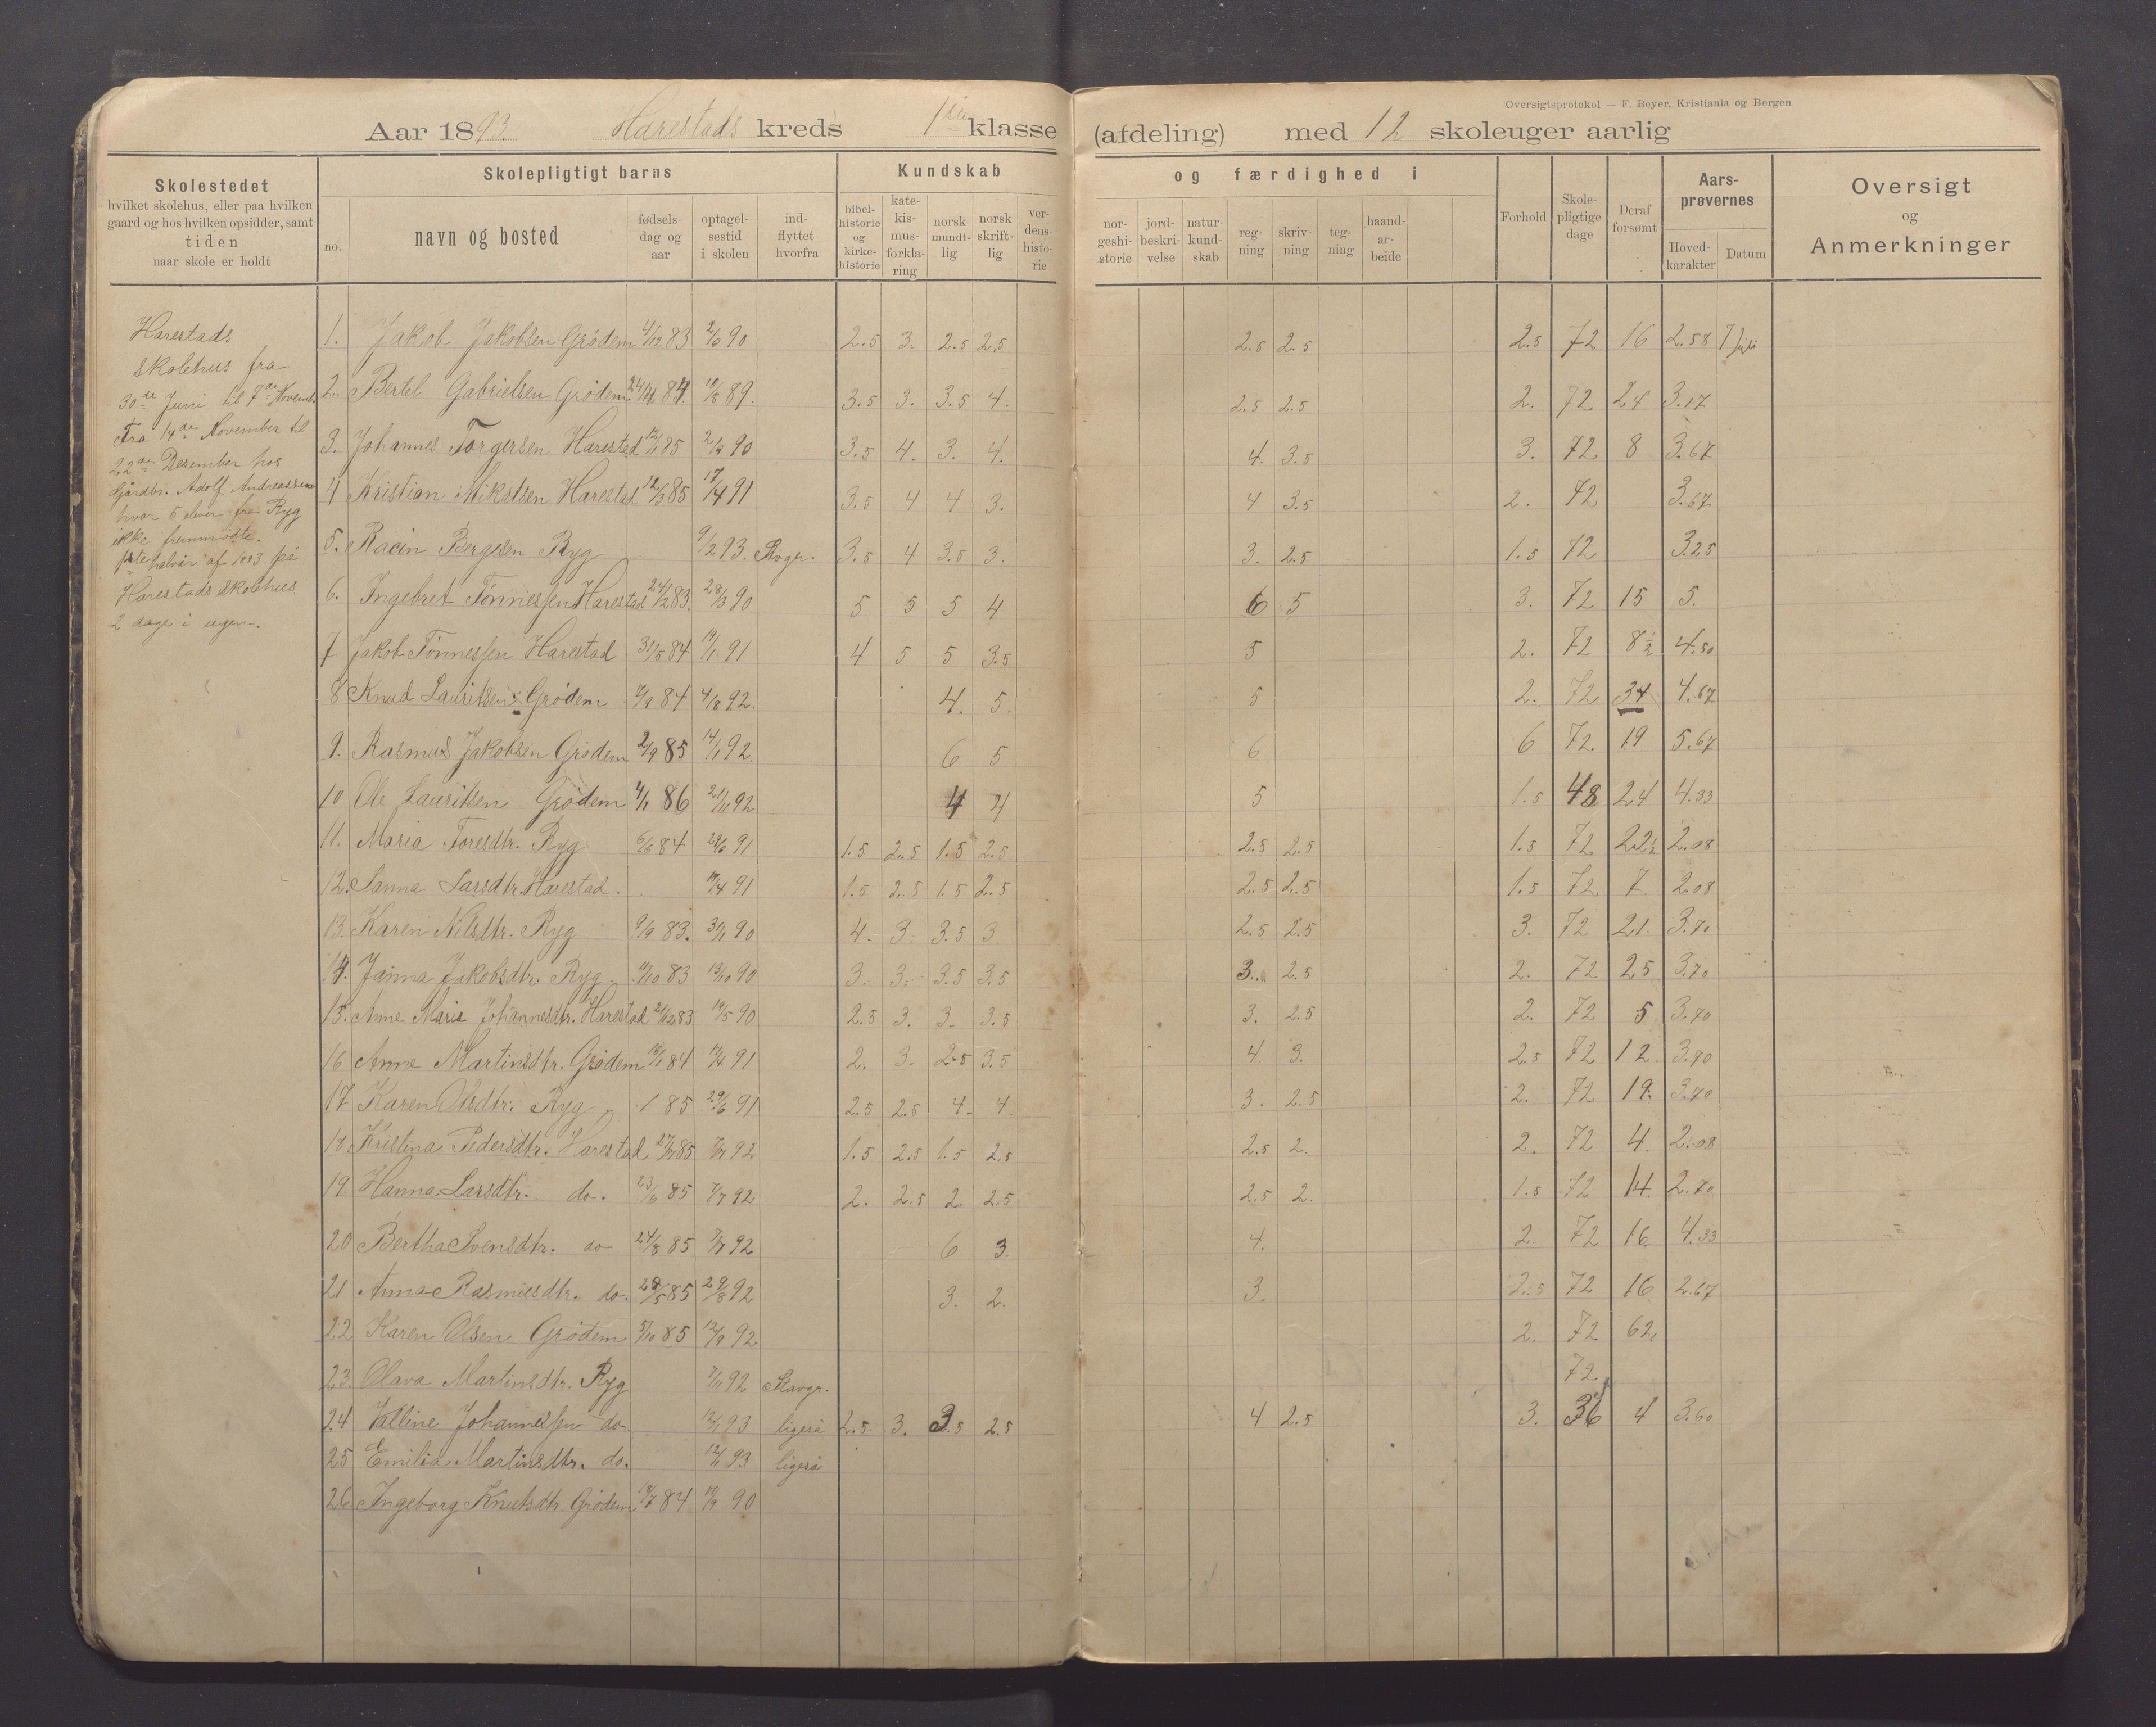 Oversigtsprotokol — F. Beyer, Kristiania og Bergen
Aar 1893. Harestads kreds 1ste klasse (afdeling) med 12 skoleuger aarlig
Skolestedet
hvilket skolehus, eller paa hvilken
gaard og hos hvilken opsidder, samt
tiden
naar skole er holdt
Skolepligtigt barns
no.
navn og bosted
fødsels-
dag og
aar
optagel-
sestid
i skolen
ind-
flyttet
hvorfra
Kundskab
bibel-
historie
og
kirke-
historie
kate-
kis-
mus-
forkla-
ring
norsk
mundt-
lig
norsk
skrift-
lig
ver-
dens-
histo-
rie
og færdighed i
nor-
geshi-
storie
jord-
beskri-
velse
natur-
kund-
skab
reg-
ning
skriv-
ning
teg-
ning
haand-
ar-
beide
Forhold
Skole-
pligtige
dage
Deraf
forsømt
Aars-
prøvernes
Hoved-
karakter
Datum
Oversigt
og
Anmerkninger
Harestads
skolehus fra
30te Juni til 7de Novemb.
Fra 14de November til
22de Desember hos
Gårdbr. Adolf Andreassen
hvor 5 elever fra Ryg
ikke fremmødte.
1ste halvår af 1893 på
Harestads skolehus
2 dage i ugen.
1. Jakob Jakobsen Grødem 4/12 83 2/6 90 2.5 3. 2.5 2.5 2.5 2.5 2.5 72 16 2.58 7 Juli
2. Bertel Gabrielsen Grødem 84 89. 3.5 3. 3.5 4. 2.5 2.5 2. 72 24 3.17
3. Johannes Torgersen Harestad 85 90 3.5 4. 3. 4. 4. 3.5 3. 72 8 3.67
4 Kristian Mikalsen Harestad 12/3 85 17/4 91 3.5 4 4 3. 4 3.5 2. 72 3.67
5. Racin Bergesen Ryg 9/2 93. Stvgr. 3.5 4 3.5 3. 3. 2.5 1.5 72 3.25
6. Ingebret Tønnessen Harestad 24/12 83. 28/3 90 5 5 5 4 6 5 3. 72 15 5.
7 Jakob Tønnessen Harestad 31/5 84 19/1 91 4 5 5 3.5 5 2. 72 8½ 4.50
8 Knud Lauritsen Grødem 84 4/8 92. 4. 5. 5 2. 72 34 4.67
9. Rasmus Jakobsen Grødem 2/9 85 14/1 92. 6 5 6 6 72 19 5.67
10 Ole Lauritsen Grødem 4/1 86 21/11 92 4 4 5 1.5 48 24 4.33
11. Maria Toresdtr. Ryg 6/6 84 29/6 91 1.5 2.5 1.5 2.5 2.5 2.5 1.5 72 22½ 2.08
12. Sanna Larsdtr. Harestad. 17/4 91 1.5 2.5 1.5 2.5 2.5 2.5 1.5 72 7. 2.08
13. Karen Nilsdtr. Ryg 9/9 83. 90 4. 3. 3.5 3. 2.5 2.5 3. 72 21. 3.70
14. Janna Jakobsdtr. Ryg 83 13/10 90 3. 3. 3.5 3.5 3. 2.5 2. 72 25 3.70
15. Anne Marie Johannesdtr. Harestad 83 19/5 90 2.5 3. 3. 3.5 3. 2.5 2. 72 5 3.70
16 Anne Martinsdtr. Grødem 84 17/4 91 2. 3. 2.5 3.5 4. 3. 2.5 72 12. 3.70
17 Karen Olsdtr. Ryg 85 29/6 91 2.5 2.5 4. 4. 3. 2.5 2. 72 19. 3.70
18. Kristina Pedersdtr. Harestad 85 92 1.5 2.5 1.5 2.5 2.5 2. 2. 72 4. 2.08
19. Hanna Larsdtr. do. 23/6 85 7/7 92 2. 2.5 2. 2.5 2.5 2. 1.5 72 14. 2.70
20 Bertha Svensdtr. do 24/8 85 92 6 3. 4. 2. 72 16. 4.33
21 Anna Rasmusdtr. do. 28/5 85 29/8 92 3. 2. 3. 2.5 72 16. 2.67
22 Karen Olsen Grødem 5/10 85 92 2. 72 62
23. Olava Martinsdtr. Ryg 92 Stavgr. 72
24 Valline Johannessen do. 12/1 93 ligeså 2.5 3. 3.5 2.5 4 2.5 3. 36 4 3.60
25 Emilia Martinsdtr. do. 12/1 93 ligeså
26. Ingeborg Knutsdtr. Grødem 84 90